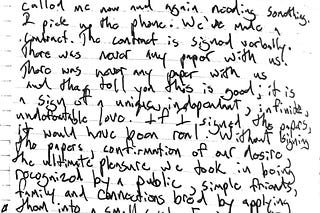 called me now and again needing something.
I pick up the phone. We've made a
contract. The contract is signed verbally.
There was never any paper with us.
There was never any paper with us
and they tell you this is good; it is
a sign of a unique, independent, infinite,
undoubtable love. If I signed the papers,
it would have been real. Without signing
the papers, confirmation of our desire,
the ultimate pleasure we took in being
recognized by a public, simple friends,
family and connections bred by applying
them into a small